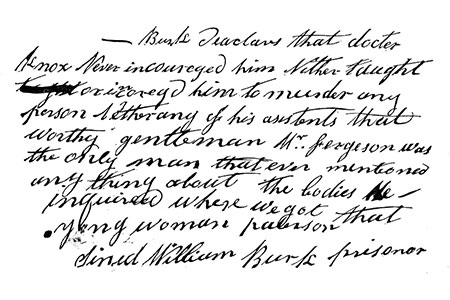 — Burk deaclars that docter
Knox Never incoureged him Nither taught
or incoregd him to murder any
person Nether any of his asistents that
worthy gentleman Mr. Fergeson was
the only man that ever mentioned
any thing about the bodies He –
inquired where we got that
yong woman paterson
Sined William Burk prisoner